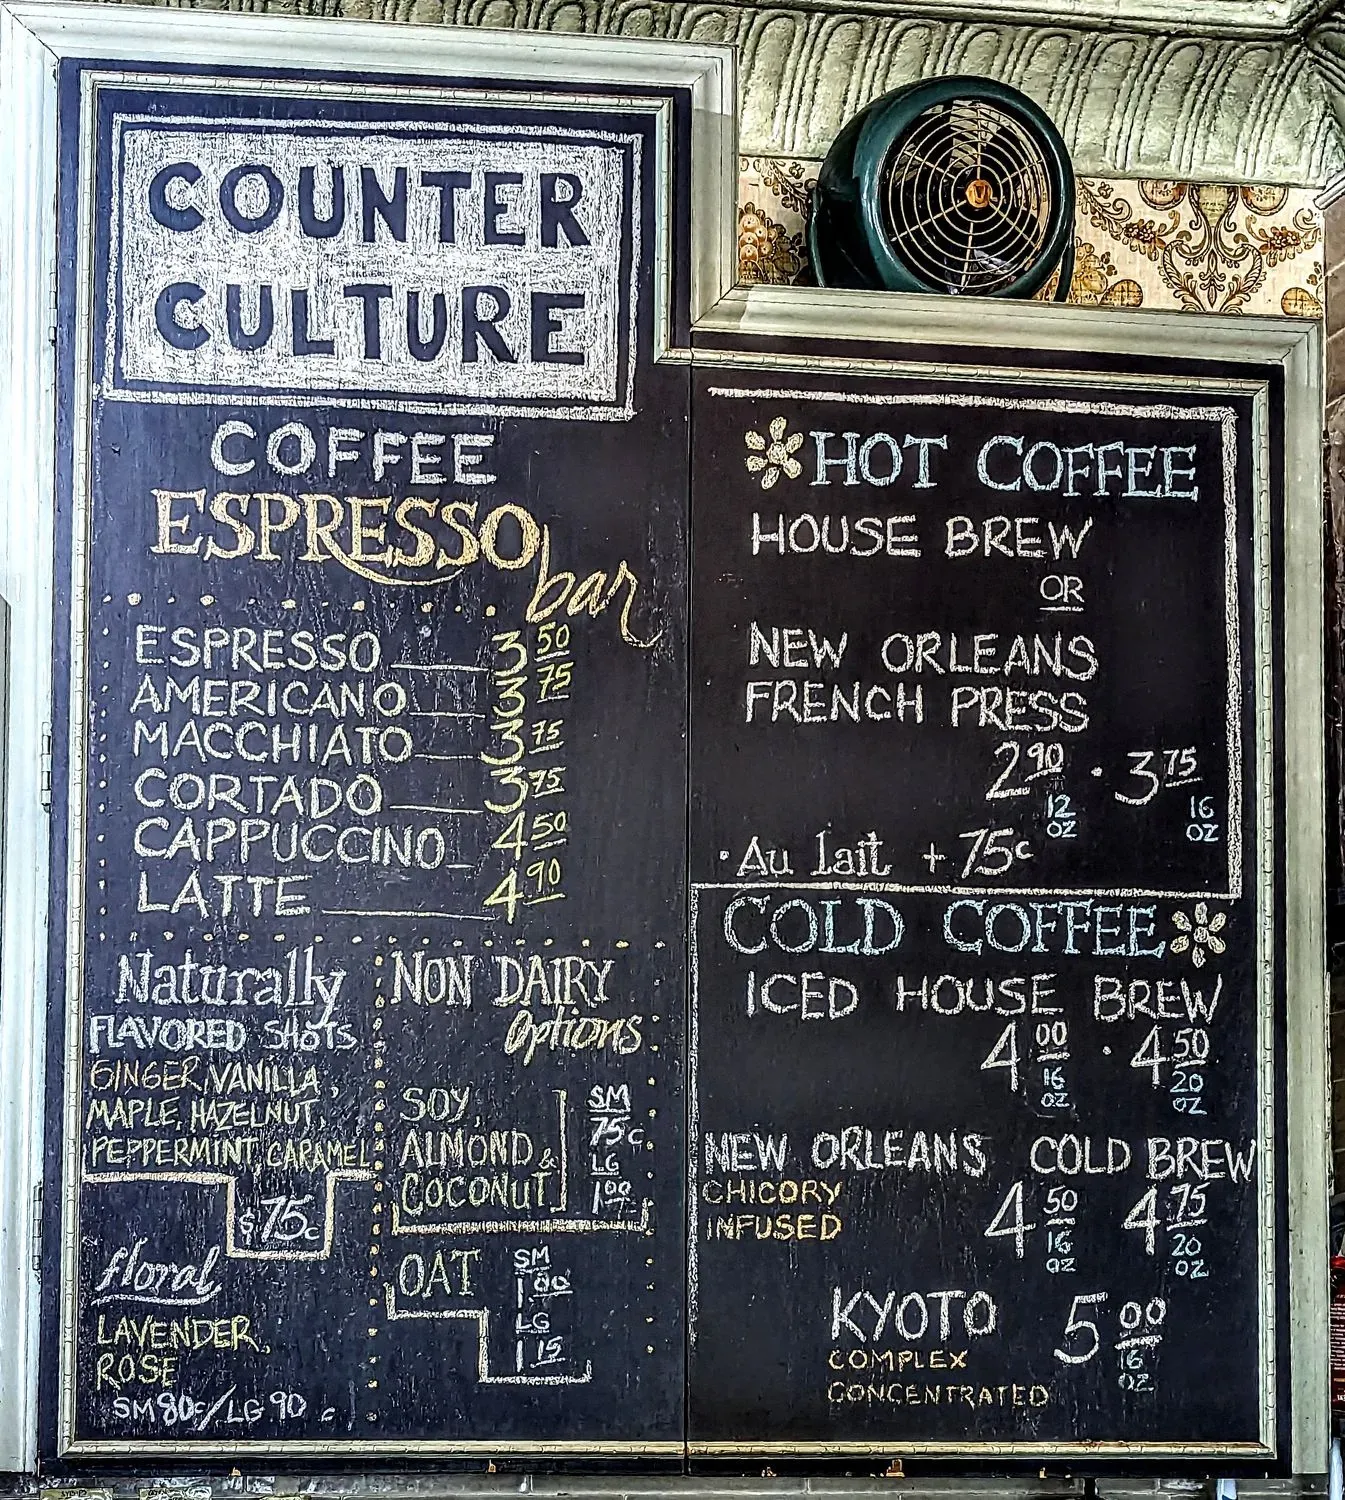 COUNTER
CULTURE
COFFEE
ESPRESSO
bar
ESPRESSO 3 50
AMERICANO 3 75
MACCHIATO 3 75
CORTADO 3 75
CAPPUCCINO 4 50
LATTE 4 90
Naturally
FLAVORED SHOTS
GINGER, VANILLA,
MAPLE, HAZELNUT,
PEPPERMINT, CARAMEL
$75c
floral
LAVENDER,
ROSE
SM 80c/LG 90c
NON DAIRY
Options
SOY,
ALMOND &
COCONUT
SM
75c
LG
1 00
OAT
SM
1 00
LG
1 15
HOT COFFEE
HOUSE BREW
OR
NEW ORLEANS
FRENCH PRESS
2 90 · 3 75
12 OZ 16 OZ
· Au lait + 75c
COLD COFFEE
ICED HOUSE BREW
4 00 · 4 50
16 OZ 20 OZ
NEW ORLEANS COLD BREW
CHICORY
INFUSED
4 50 4 75
16 OZ 20 OZ
KYOTO 5 00
16 OZ
COMPLEX
CONCENTRATED